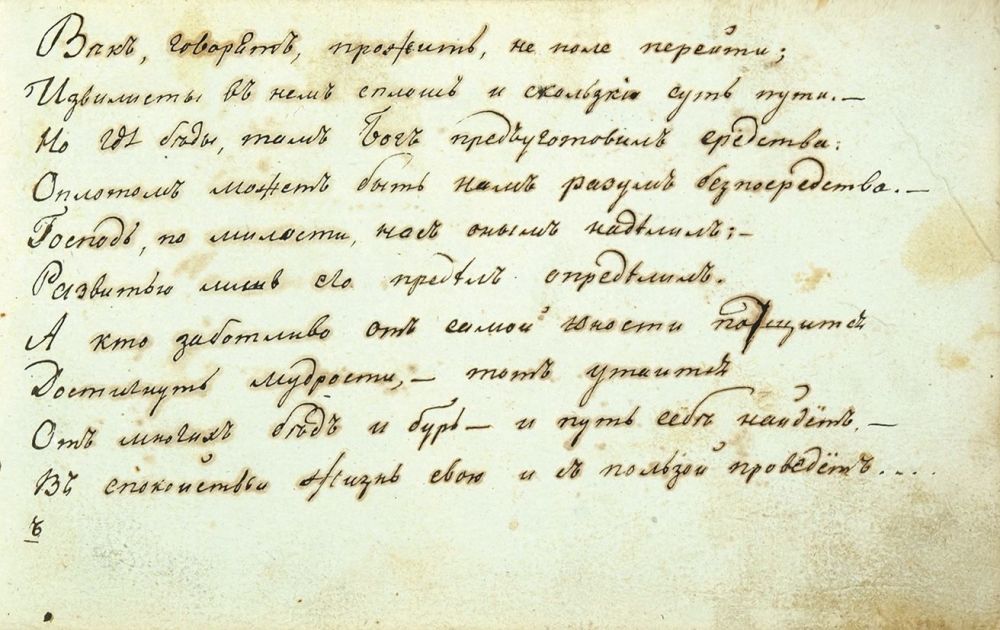 Вѣкъ, говорятъ, прожить, не поле перейти;
Извилисты въ немъ сплошь и скользки суть пути.—
Но гдѣ бѣды, тамъ Богъ предъуготовилъ средства:
Оплотомъ можетъ быть намъ разумъ безпосредства.—
Господь, по милости, насъ онымъ надѣлилъ;—
Развитью лишь его предѣлъ опредѣлилъ.
А кто заботливо отъ самой юности потщится
Достигнуть мудрости,— тотъ утаится
Отъ многихъ бѣдъ и бурь— и путь себѣ найдётъ,—
Въ спокойствьи жизнь свою и съ пользой проведётъ....
ъ